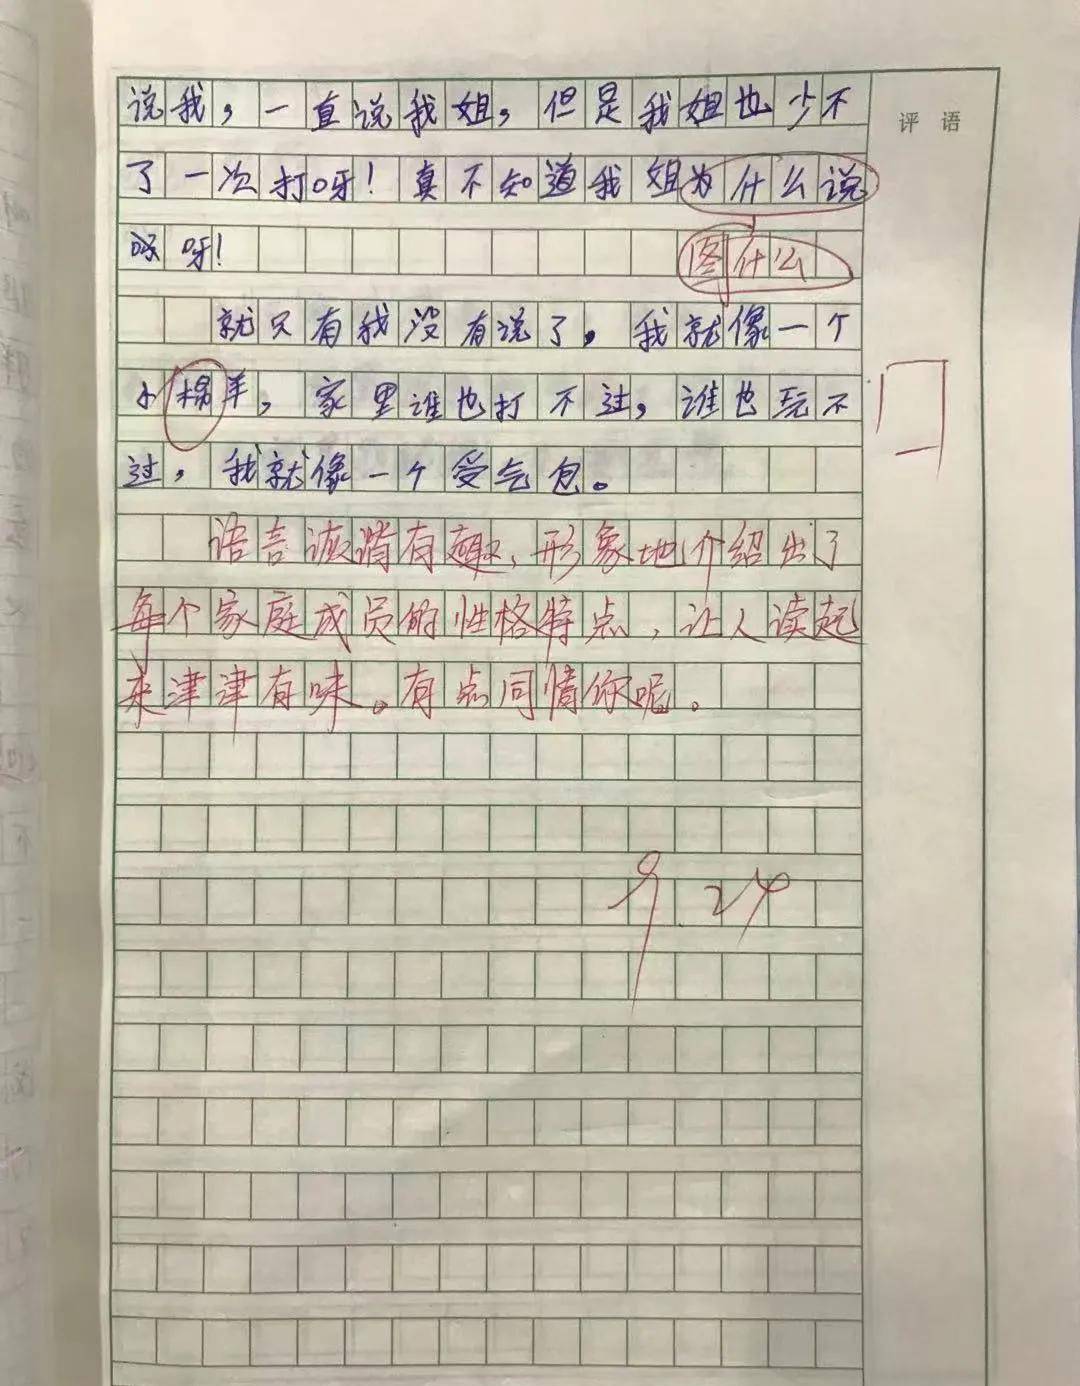 说我，一直说我姐，但是我姐也少不
评语
了一次打呀！真不知道我姐为什么说
呀！
图什么
就只有我没有说了。我就像一个
小棉羊，家里谁也打不过，谁也玩不
过，我就像一个受气包。
语言诙谐有趣，形象地介绍出了
每个家庭成员的性格特点，让人读起
来津津有味。有点同情你呢。
9.24